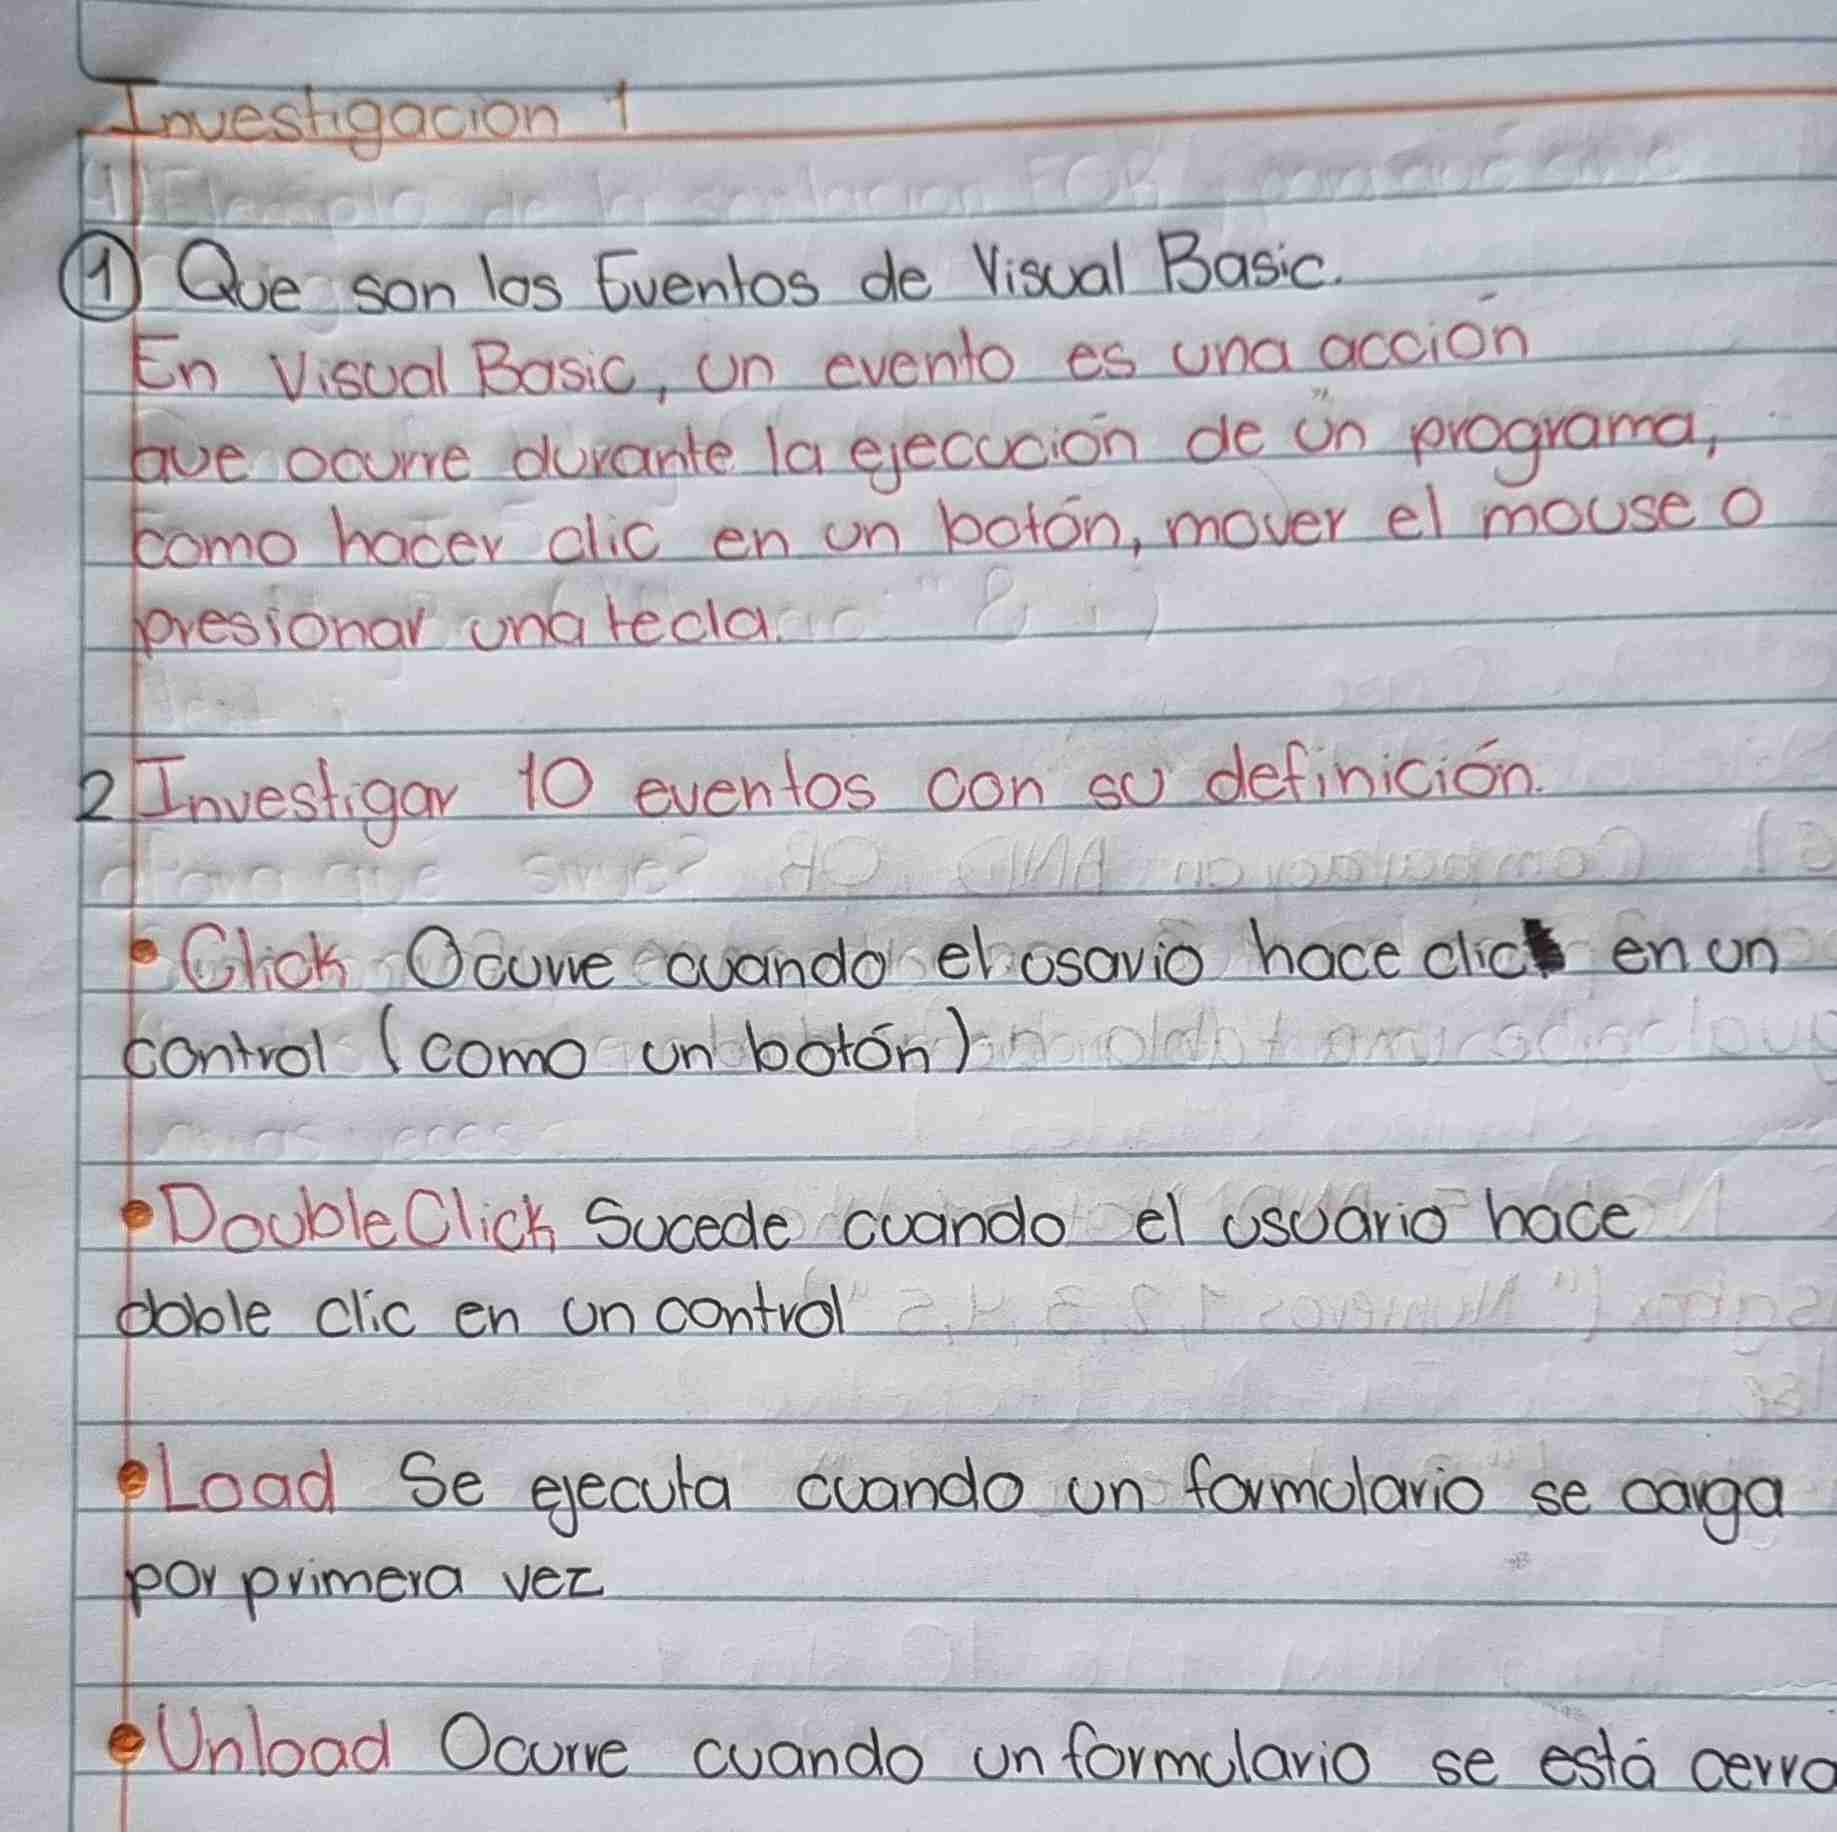 Investigacion 1
1) Que son los Eventos de Visual Basic.
En Visual Basic, un evento es una acción
que ocurre durante la ejecución de un programa,
como hacer clic en un botón, mover el mouse o
presionar una tecla.
2 Investigar 10 eventos con su definición.
• Click Ocurre cuando el usuario hace clic en un
control (como un botón)
• DoubleClick Sucede cuando el usuario hace
doble clic en un control
• Load Se ejecuta cuando un formulario se carga
por primera vez
• Unload Ocurre cuando un formulario se está cerra